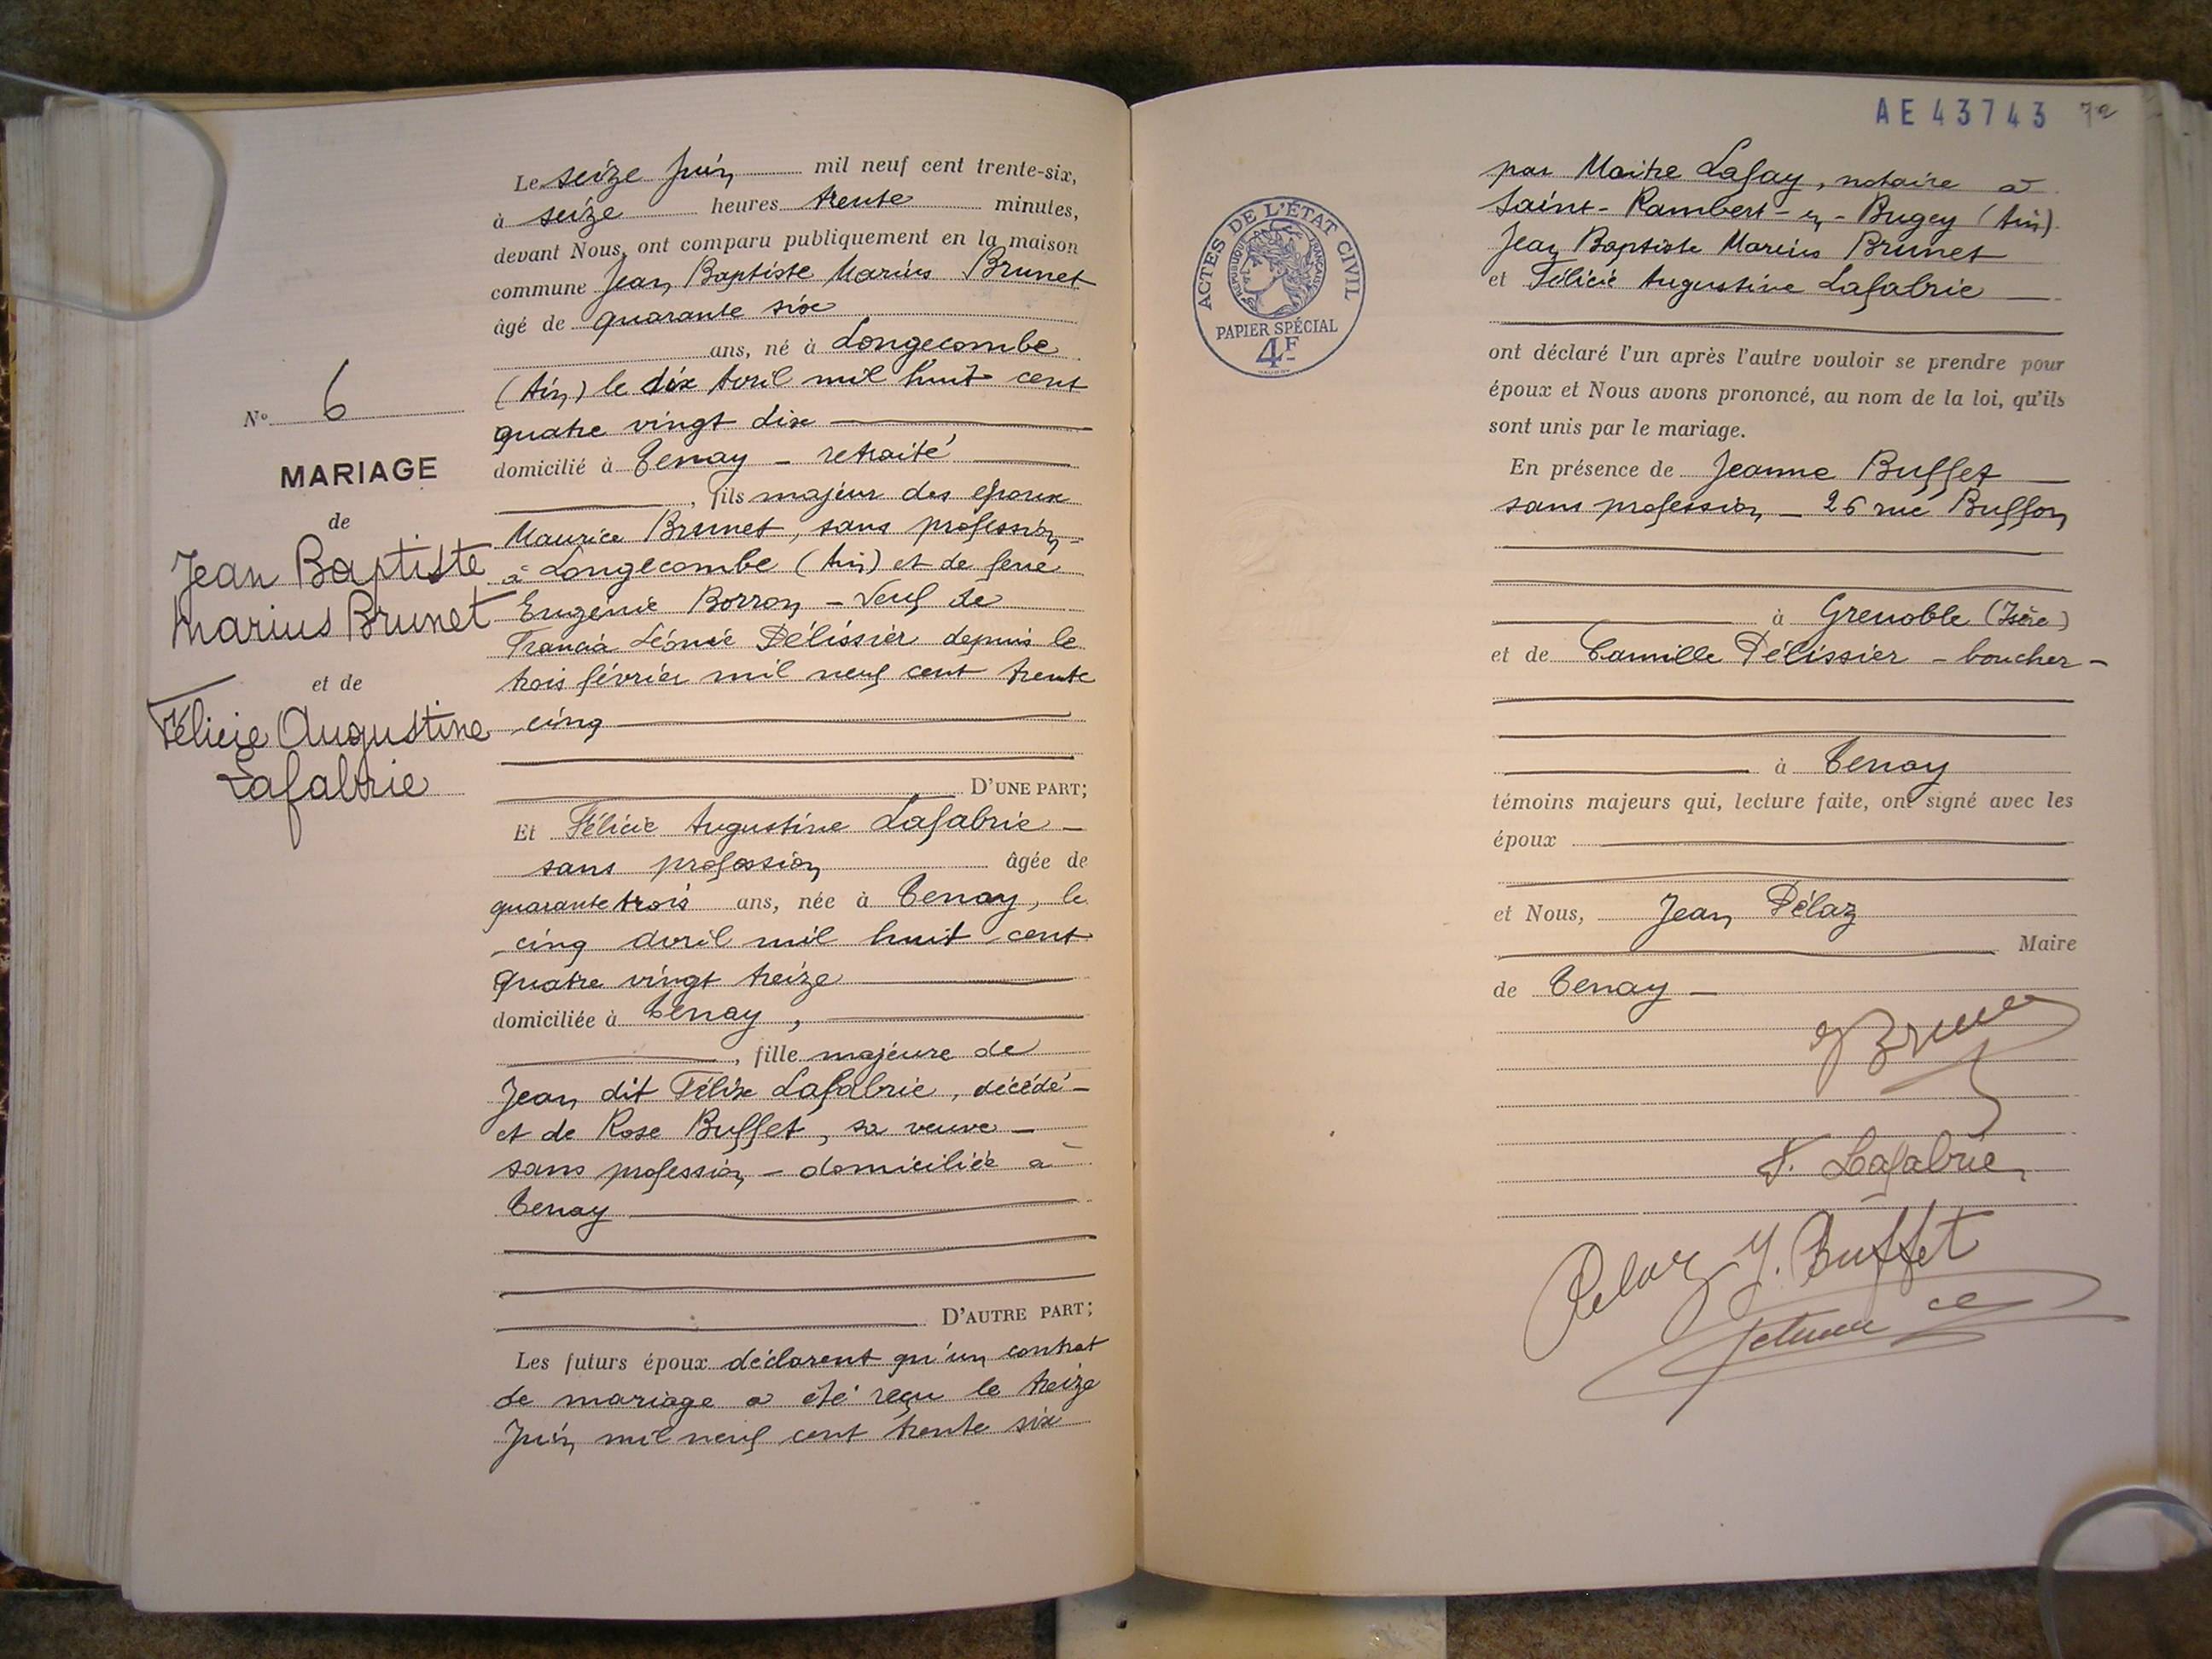 N° 6
MARIAGE
de
Jean Baptiste
Marius Brunet
et de
Félicie Augustine
Lafabrie
Le seize Juin mil neuf cent trente-six,
à seize heures trente minutes,
devant Nous, ont comparu publiquement en la maison
commune Jean Baptiste Marius Brunet
âgé de quarante six
ans, né à Longecombe
(Ain) le dix Avril mil huit cent
quatre vingt dix
domicilié à Tenay - retraité
, fils majeur des époux
Maurice Brunet, sans profession
à Longecombe (Ain) et de feue
Eugénie Borron - Veuf de
Francia Léonie Pélissier depuis le
trois février mil neuf cent trente
cinq
D'UNE PART;
Et Félicie Augustine Lafabrie -
sans profession âgée de
quarante trois ans, née à Tenay, le
cinq Avril mil huit cent
quatre vingt treize
domiciliée à Tenay,
, fille majeure de
Jean dit Félix Lafabrie, décédé -
et de Rose Buffet, sa veuve -
sans profession - domiciliée à
Tenay
D'AUTRE PART;
Les futurs époux déclarent qu'un contrat
de mariage a été reçu le treize
Juin mil neuf cent trente six
AE 43743 72
ACTES DE L'ÉTAT CIVIL
RÉPUBLIQUE FRANÇAISE
PAPIER SPÉCIAL
4F
par Maitre Lafay, notaire à
Saint-Rambert-en-Bugey (Ain)
Jean Baptiste Marius Brunet
et Félicie Augustine Lafabrie
ont déclaré l'un après l'autre vouloir se prendre pour
époux et Nous avons prononcé, au nom de la loi, qu'ils
sont unis par le mariage.
En présence de Jeanne Buffet
sans profession - 26 rue Buffon
à Grenoble (Isère)
et de Camille Pélissier - boucher -
à Tenay
témoins majeurs qui, lecture faite, ont signé avec les
époux
et Nous, Jean Pélaz
Maire
de Tenay -
Brunet
F. Lafabrie
Pelaz J. Buffet